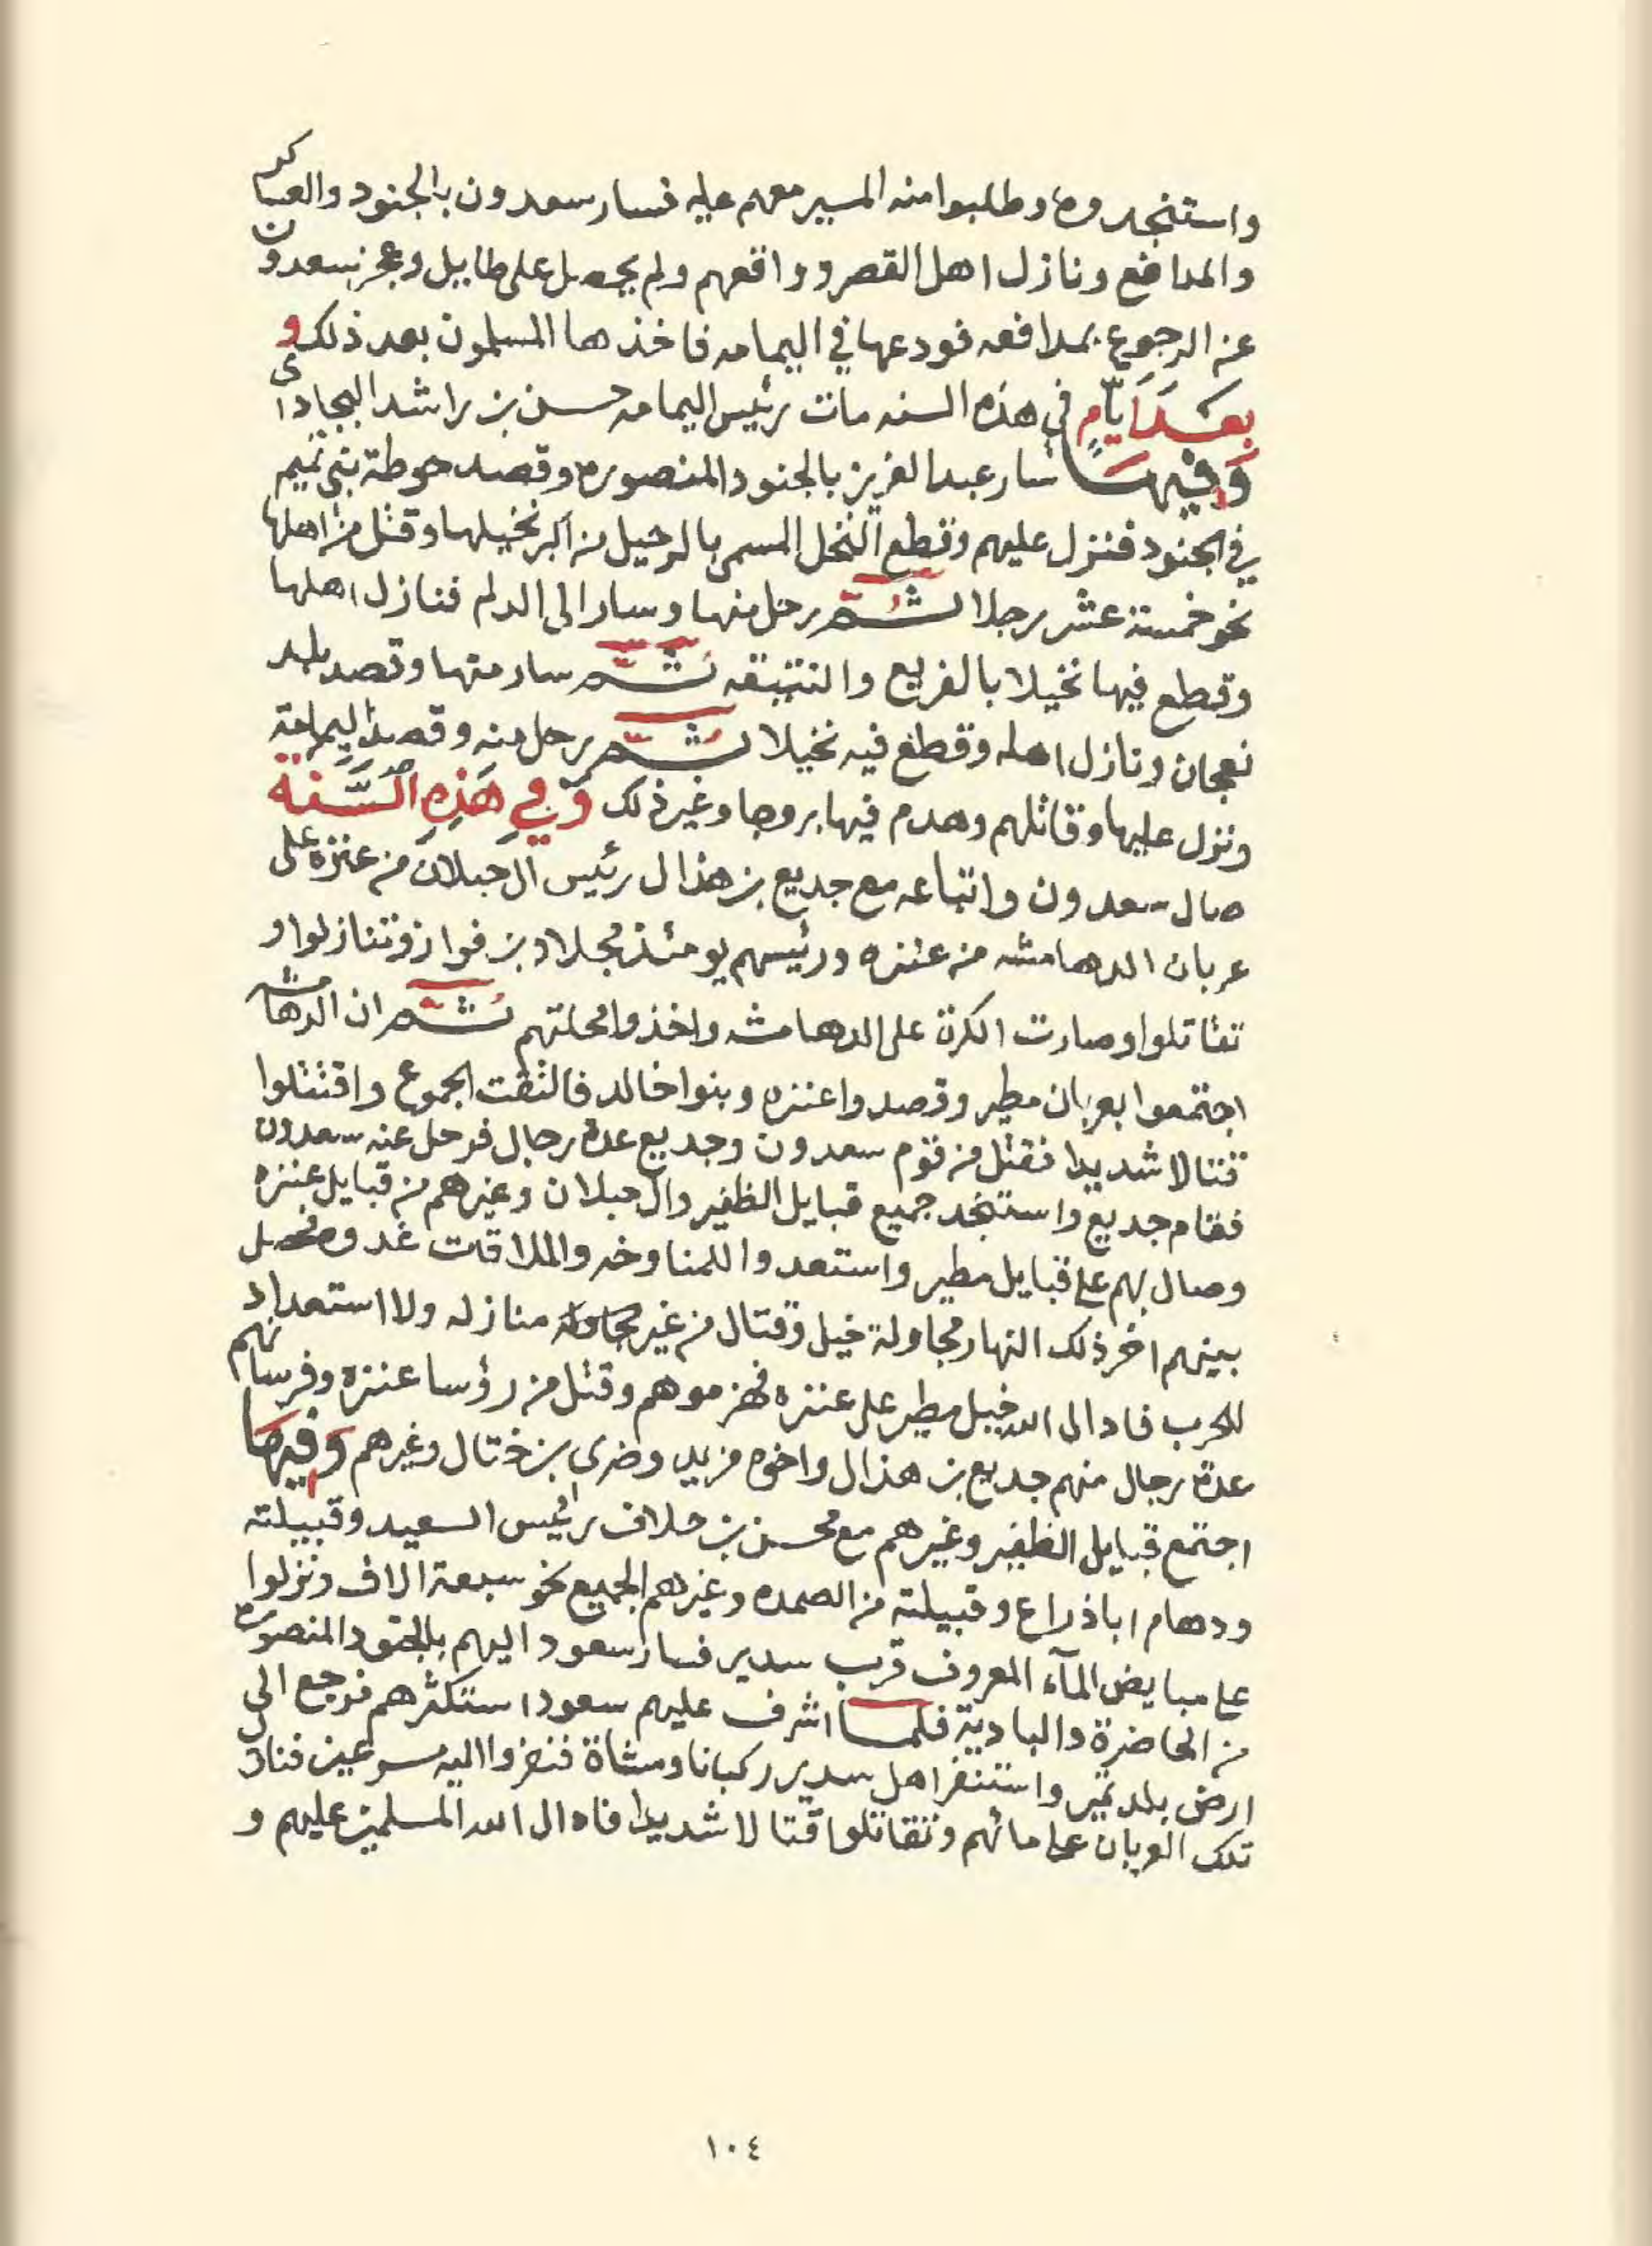 واستنجدوه وطلبوا منه المسير معهم عليه فسار سعدون بالجنود والعساكر
والمدافع ونازل اهل القصر وواقعهم ولم يحصل على طايل وعجز سعدون
عن الرجوع بمدافعه فودعها في اليمامه فاخذها المسلمون بعد ذلك و
بعد ايام في هذه السنه مات رئيس اليمامه حسن بن راشد البجادي
وفيها سار عبد العزيز بالجنود المنصوره وقصد حوطة بني تميم
في الجنود فنزل عليهم وقطع النخل المسمى بالرحيل من اكبر نخيلها وقتل من اهلها
نحو خمسة عشر رجلا ثم رحل منها وسار الى الدلم فنازل اهلها
وقطع فيها نخيلا بالفريع والنتيقه ثم سار منها وقصد بلد
نعجان ونازل اهله وقطع فيه نخيلا ثم رحل منه وقصد اليمامة
ونزل عليها وقاتلهم وهدم فيها بروجا وغير ذلك وفي هذه السنة
صال سعدون واتباعه مع جديع بن هذال رئيس ال حبلان من عنزه على
عربان الدهامشه من عنزه ورئيسهم يومئذ مجلاد بن فواز وتنازلوا و
تقاتلوا وصارت الكرة على الدهامشه واخذوا محلتهم ثم ان الدهامشه
اجتمعوا بعربان مطير وقصدوا عنزه وبنوا خالد فالتقت الجموع واقتتلوا
قتالا شديدا فقتل من قوم سعدون وجديع عدة رجال فرحل عنه سعدون
فقام جديع واستنجد جميع قبايل الظفير وال حبلان وغيرهم من قبايل عنزه
وصال بهم على قبايل مطير واستعدوا للمناوخه والملاقات غدوه فحصل
بينهم اخر ذلك النهار مجاولة خيل وقتال من غير منازله ولا استعداد
للحرب فادال الله خيل مطير على عنزه فهزموهم وقتل من رؤسا عنزه وفرسانهم
عدة رجال منهم جديع بن هذال واخوه مزيد وضرى بن ختال وغيرهم وفيها
اجتمع قبايل الظفير وغيرهم مع محسن بن حلاف رائيس السعيد وقبيلته
ودهام اباذراع وقبيلته من الصمده وغيرهم الجميع نحو سبعة الاف ونزلوا
على مبايض المآء المعروف قرب سدير فسار سعود اليهم بالجنود المنصوره
من الحاضرة والبادية فلما اشرف عليهم سعود استكثرهم فرجع الى
ارض بلد تمير واستنفر اهل سدير ركبانا ومشاة فنفروا اليه مسرعين فنازل
تلك العربان على مائهم وتقاتلوا قتالا شديدا فادال الله المسلمين عليهم و
١٠٤